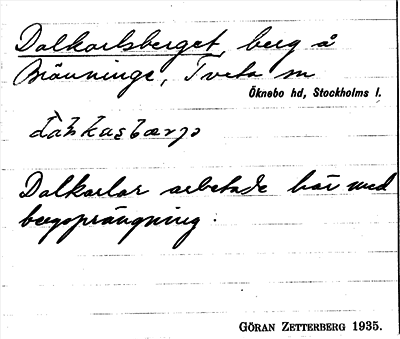 Dalkarlsberget, berg å
Bränninge, Tveta sn
Öknebo hd, Stockholms l.
Dalkarlar arbetade här med
bergsprängning.
GÖRAN ZETTERBERG 1935.